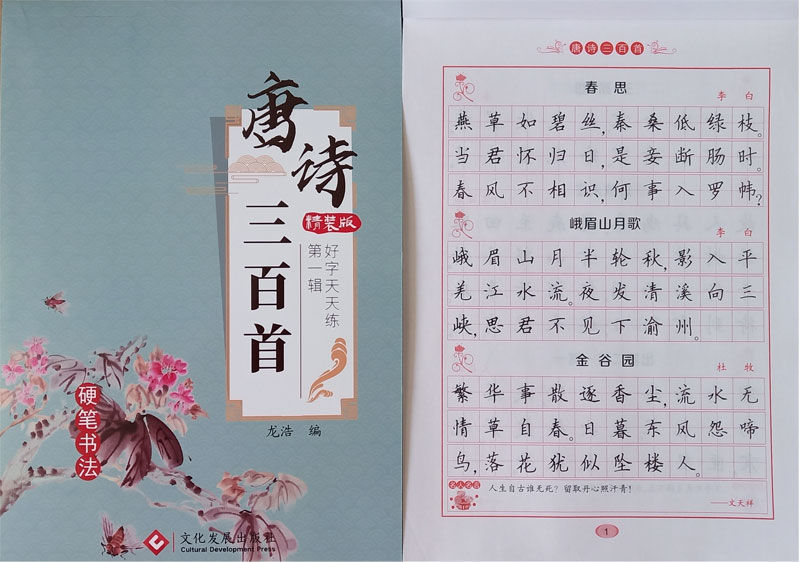 唐诗
三百首
精装版
好字天天练
第一辑
硬笔书法
龙浩 编
文化发展出版社
Cultural Development Press
唐诗三百首
春思
李 白
燕草如碧丝,秦桑低绿枝。
当君怀归日,是妾断肠时。
春风不相识,何事入罗帏?
峨眉山月歌
李 白
峨眉山月半轮秋,影入平
羌江水流。夜发清溪向三
峡,思君不见下渝州。
金谷园
杜 牧
繁华事散逐香尘,流水无
情草自春。日暮东风怨啼
鸟,落花犹似坠楼人。
名人名言
人生自古谁无死?留取丹心照汗青!
——文天祥
1